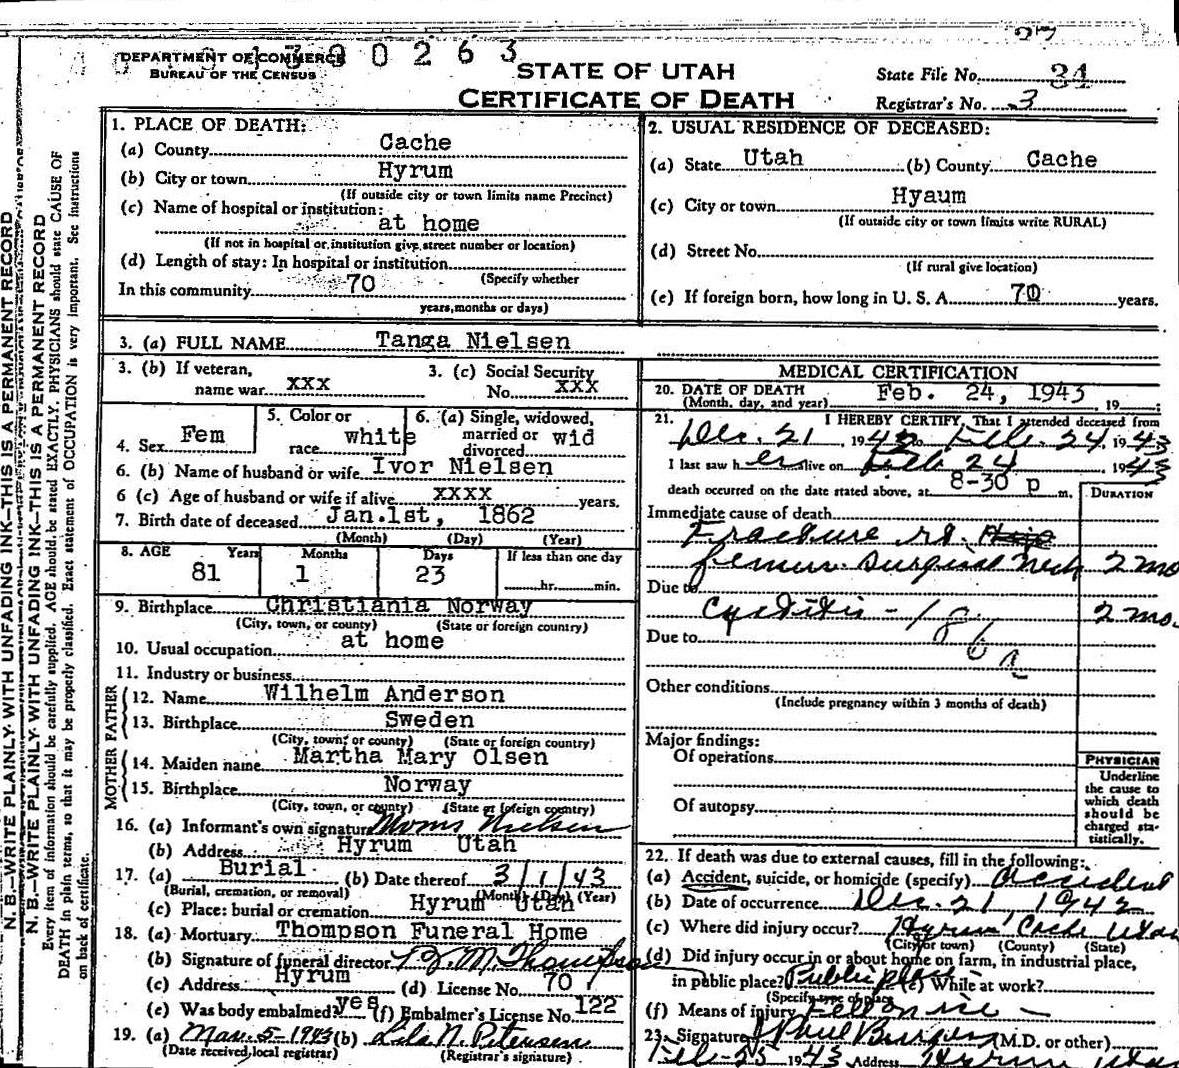 1390263
DEPARTMENT OF COMMERCE
BUREAU OF THE CENSUS
STATE OF UTAH
CERTIFICATE OF DEATH
State File No. 34
Registrar's No. 3
N. B.—WRITE PLAINLY WITH UNFADING INK—THIS IS A PERMANENT RECORD
N. B.—WRITE PLAINLY WITH UNFADING INK—THIS IS A PERMANENT RECORD
Every item of information should be carefully supplied. AGE should be stated EXACTLY. PHYSICIANS should state CAUSE OF
DEATH in plain terms, so that it may be properly classified. Exact statement of OCCUPATION is very important. See instructions
on back of certificate.
1. PLACE OF DEATH:
(a) County Cache
(b) City or town Hyrum
(If outside city or town limits name Precinct)
(c) Name of hospital or institution:
at home
(If not in hospital or institution give street number or location)
(d) Length of stay: In hospital or institution
(Specify whether
In this community 70
years, months or days)
2. USUAL RESIDENCE OF DECEASED:
(a) State Utah (b) County Cache
(c) City or town Hyaum
(If outside city or town limits write RURAL)
(d) Street No.
(If rural give location)
(e) If foreign born, how long in U. S. A. 70 years.
3. (a) FULL NAME Tanga Nielsen
3. (b) If veteran, name war xxx
3. (c) Social Security No. xxx
4. Sex Fem
5. Color or race white
6. (a) Single, widowed, married or divorced wid
6. (b) Name of husband or wife Ivor Nielsen
6 (c) Age of husband or wife if alive xxxx years.
7. Birth date of deceased Jan.1st, 1862
(Month) (Day) (Year)
8. AGE Years Months Days If less than one day
81 1 23 hr. min.
9. Birthplace Christiania Norway
(City, town, or county) (State or foreign country)
10. Usual occupation at home
11. Industry or business
FATHER
12. Name Wilhelm Anderson
13. Birthplace Sweden
(City, town, or county) (State or foreign country)
MOTHER
14. Maiden name Martha Mary Olsen
15. Birthplace Norway
(City, town, or county) (State or foreign country)
16. (a) Informant's own signature Nielsen
(b) Address Hyrum Utah
17. (a) Burial (b) Date thereof 3/1/43
(Burial, cremation, or removal) (Month) (Day) (Year)
(c) Place: burial or cremation Hyrum Utah
18. (a) Mortuary Thompson Funeral Home
(b) Signature of funeral director M. Thompson
(c) Address Hyrum (d) License No. 70
(e) Was body embalmed? yes (f) Embalmer's License No. 122
19. (a) Mar. 5-1943 (b) Lila N. Petersen
(Date received local registrar) (Registrar's signature)
MEDICAL CERTIFICATION
20. DATE OF DEATH Feb. 24, 1943
(Month, day, and year) , 19
21. I HEREBY CERTIFY, That I attended deceased from
Dec. 21, 1942 to Feb. 24, 1943
I last saw her alive on Feb 24, 1943
death occurred on the date stated above, at 8-30 p m.
DURATION
Immediate cause of death
Fracture rt. Hip
femur surgical neck 2 mo
Due to
Cystitis - 2 mo.
186a
Due to
Other conditions
(Include pregnancy within 3 months of death)
Major findings:
Of operations
Of autopsy
PHYSICIAN
Underline
the cause to
which death
should be
charged sta-
tistically.
22. If death was due to external causes, fill in the following:
(a) Accident, suicide, or homicide (specify) accident
(b) Date of occurrence Dec. 21, 1942
(c) Where did injury occur? Hyrum, Cache Utah
(City or town) (County) (State)
(d) Did injury occur in or about home on farm, in industrial place,
in public place? Public place (e) While at work?
(Specify type of place)
(f) Means of injury Fell on ice
23. Signature Paul Burgess (M.D. or other)
Feb-25 1943 Address Hyrum Utah